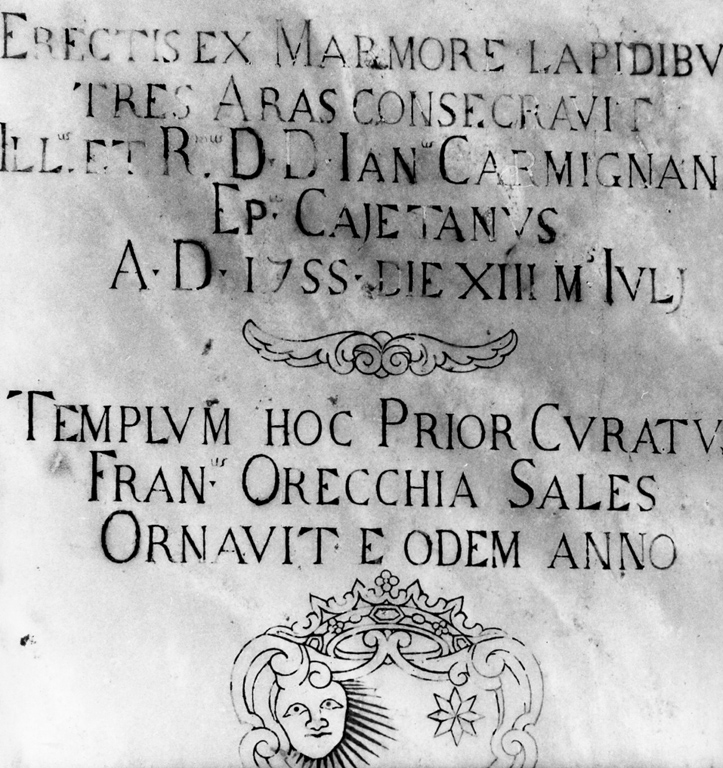 ERECTIS EX MARMORE LAPIDIBV
TRES ARAS CONSECRAVIT
ILL.us ET R.mus D. D. IAN.us CARMIGNAN
EP.s CAJETANVS
A. D. 1755. DIE XIII M.s IVLJ
TEMPLVM HOC PRIOR CVRATV
FRAN.us ORECCHIA SALES
ORNAVIT EODEM ANNO